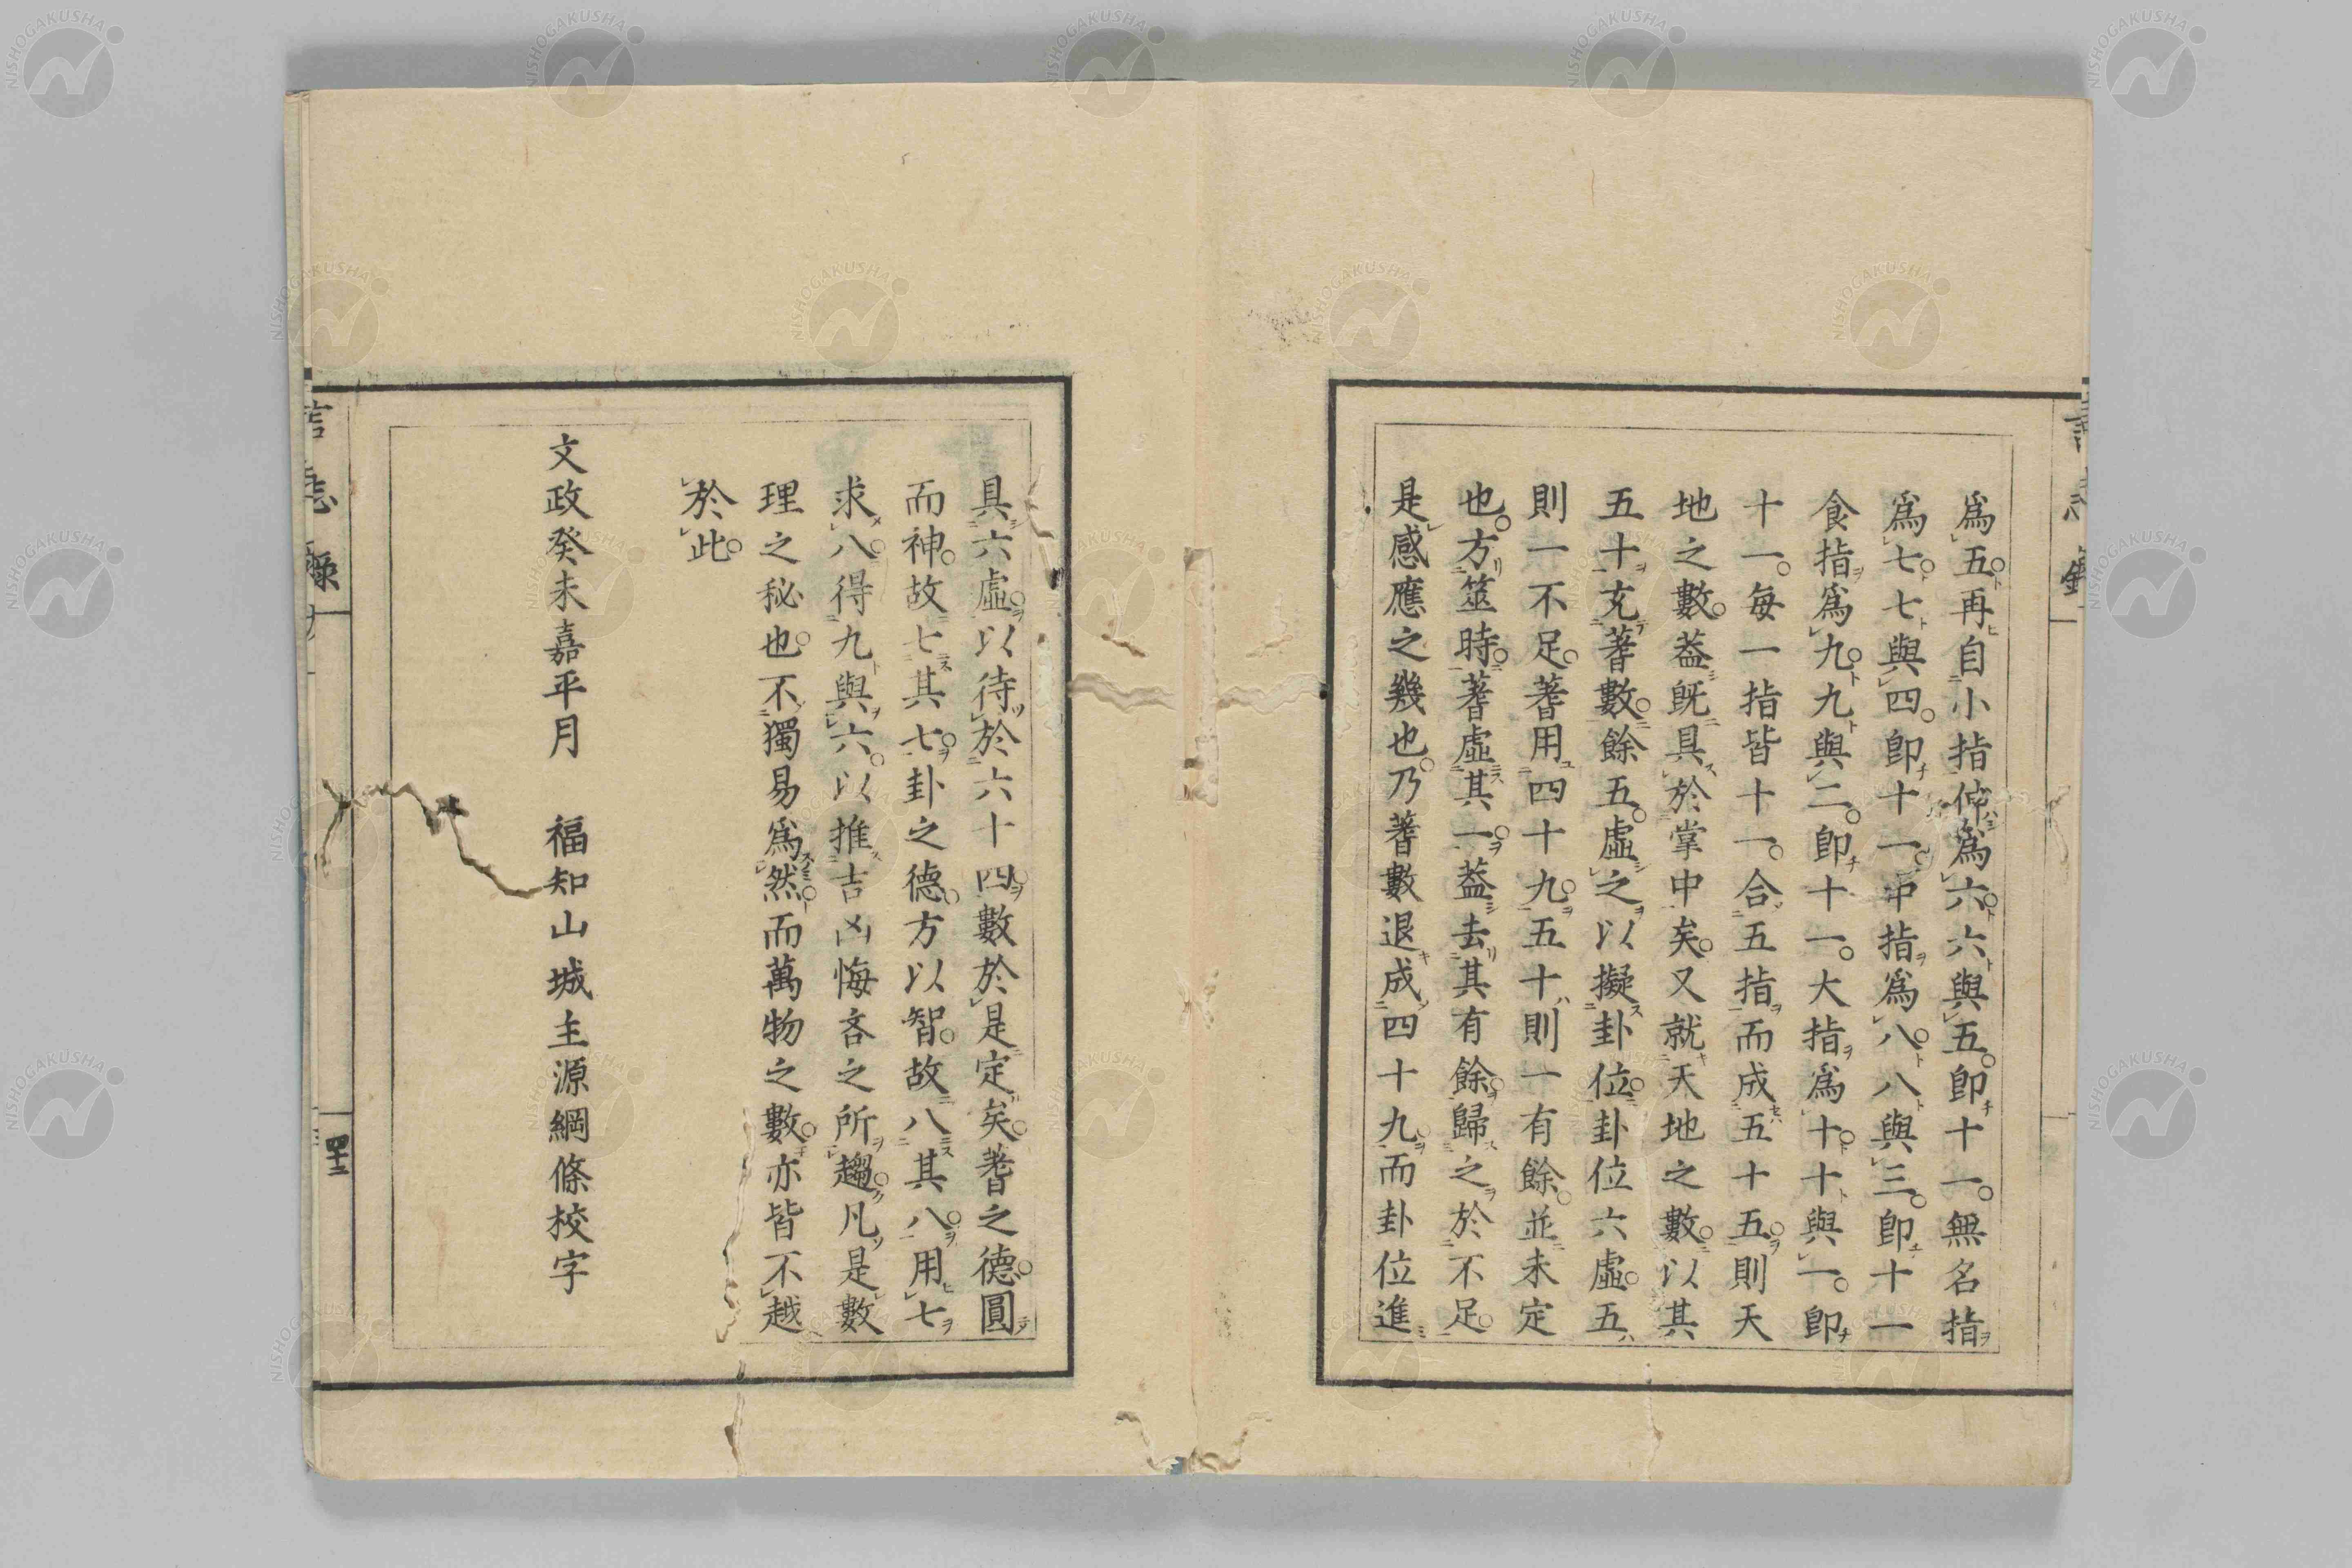 爲五。再自小指伸爲六。六與五。卽十一。無名指
爲七。七與四。卽十一。中指爲八。八與三。卽十一
食指爲九。九與二。卽十一。大指爲十。十與一。卽
十一。每一指皆十一。合五指而成五十五。則天
地之數。葢旣具於掌中矣。又就天地之數。以其
五十充蓍數。餘五。虛之以擬卦位。卦位六虛。五
則一不足。蓍用四十九。五十則一有餘。並未定
也。方筮時。蓍虛其一。葢去其有餘。歸之於不足。
是感應之幾也。乃蓍數退成四十九。而卦位進
具六虛。以待於六十四。數於是定矣。蓍之德。圓
而神。故七其七。卦之德。方以智。故八其八。用七
求八。得九與六。以推吉凶悔吝之所趨。凡是數
理之秘也。不獨易爲然。而萬物之數。亦皆不越
於此。
文政癸未嘉平月 福知山城主源綱條校字
言志錄
NISHOGAKUSHA